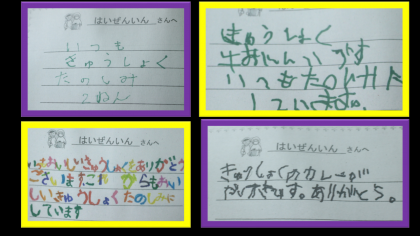 はいぜんいん さんへ
いつも
きゅうしょく
たのしみ
2ねん
きゅうしょく
いつもたのしみに
しています。
はいぜんいん さんへ
いつもおいしいきゅうしょくをありがとう
ございます。これからもおいしい
しいきゅうしょくたのしみに
しています
はいぜんいん さんへ
きゅうしょくのカレーが
だいすきです。ありがとう。